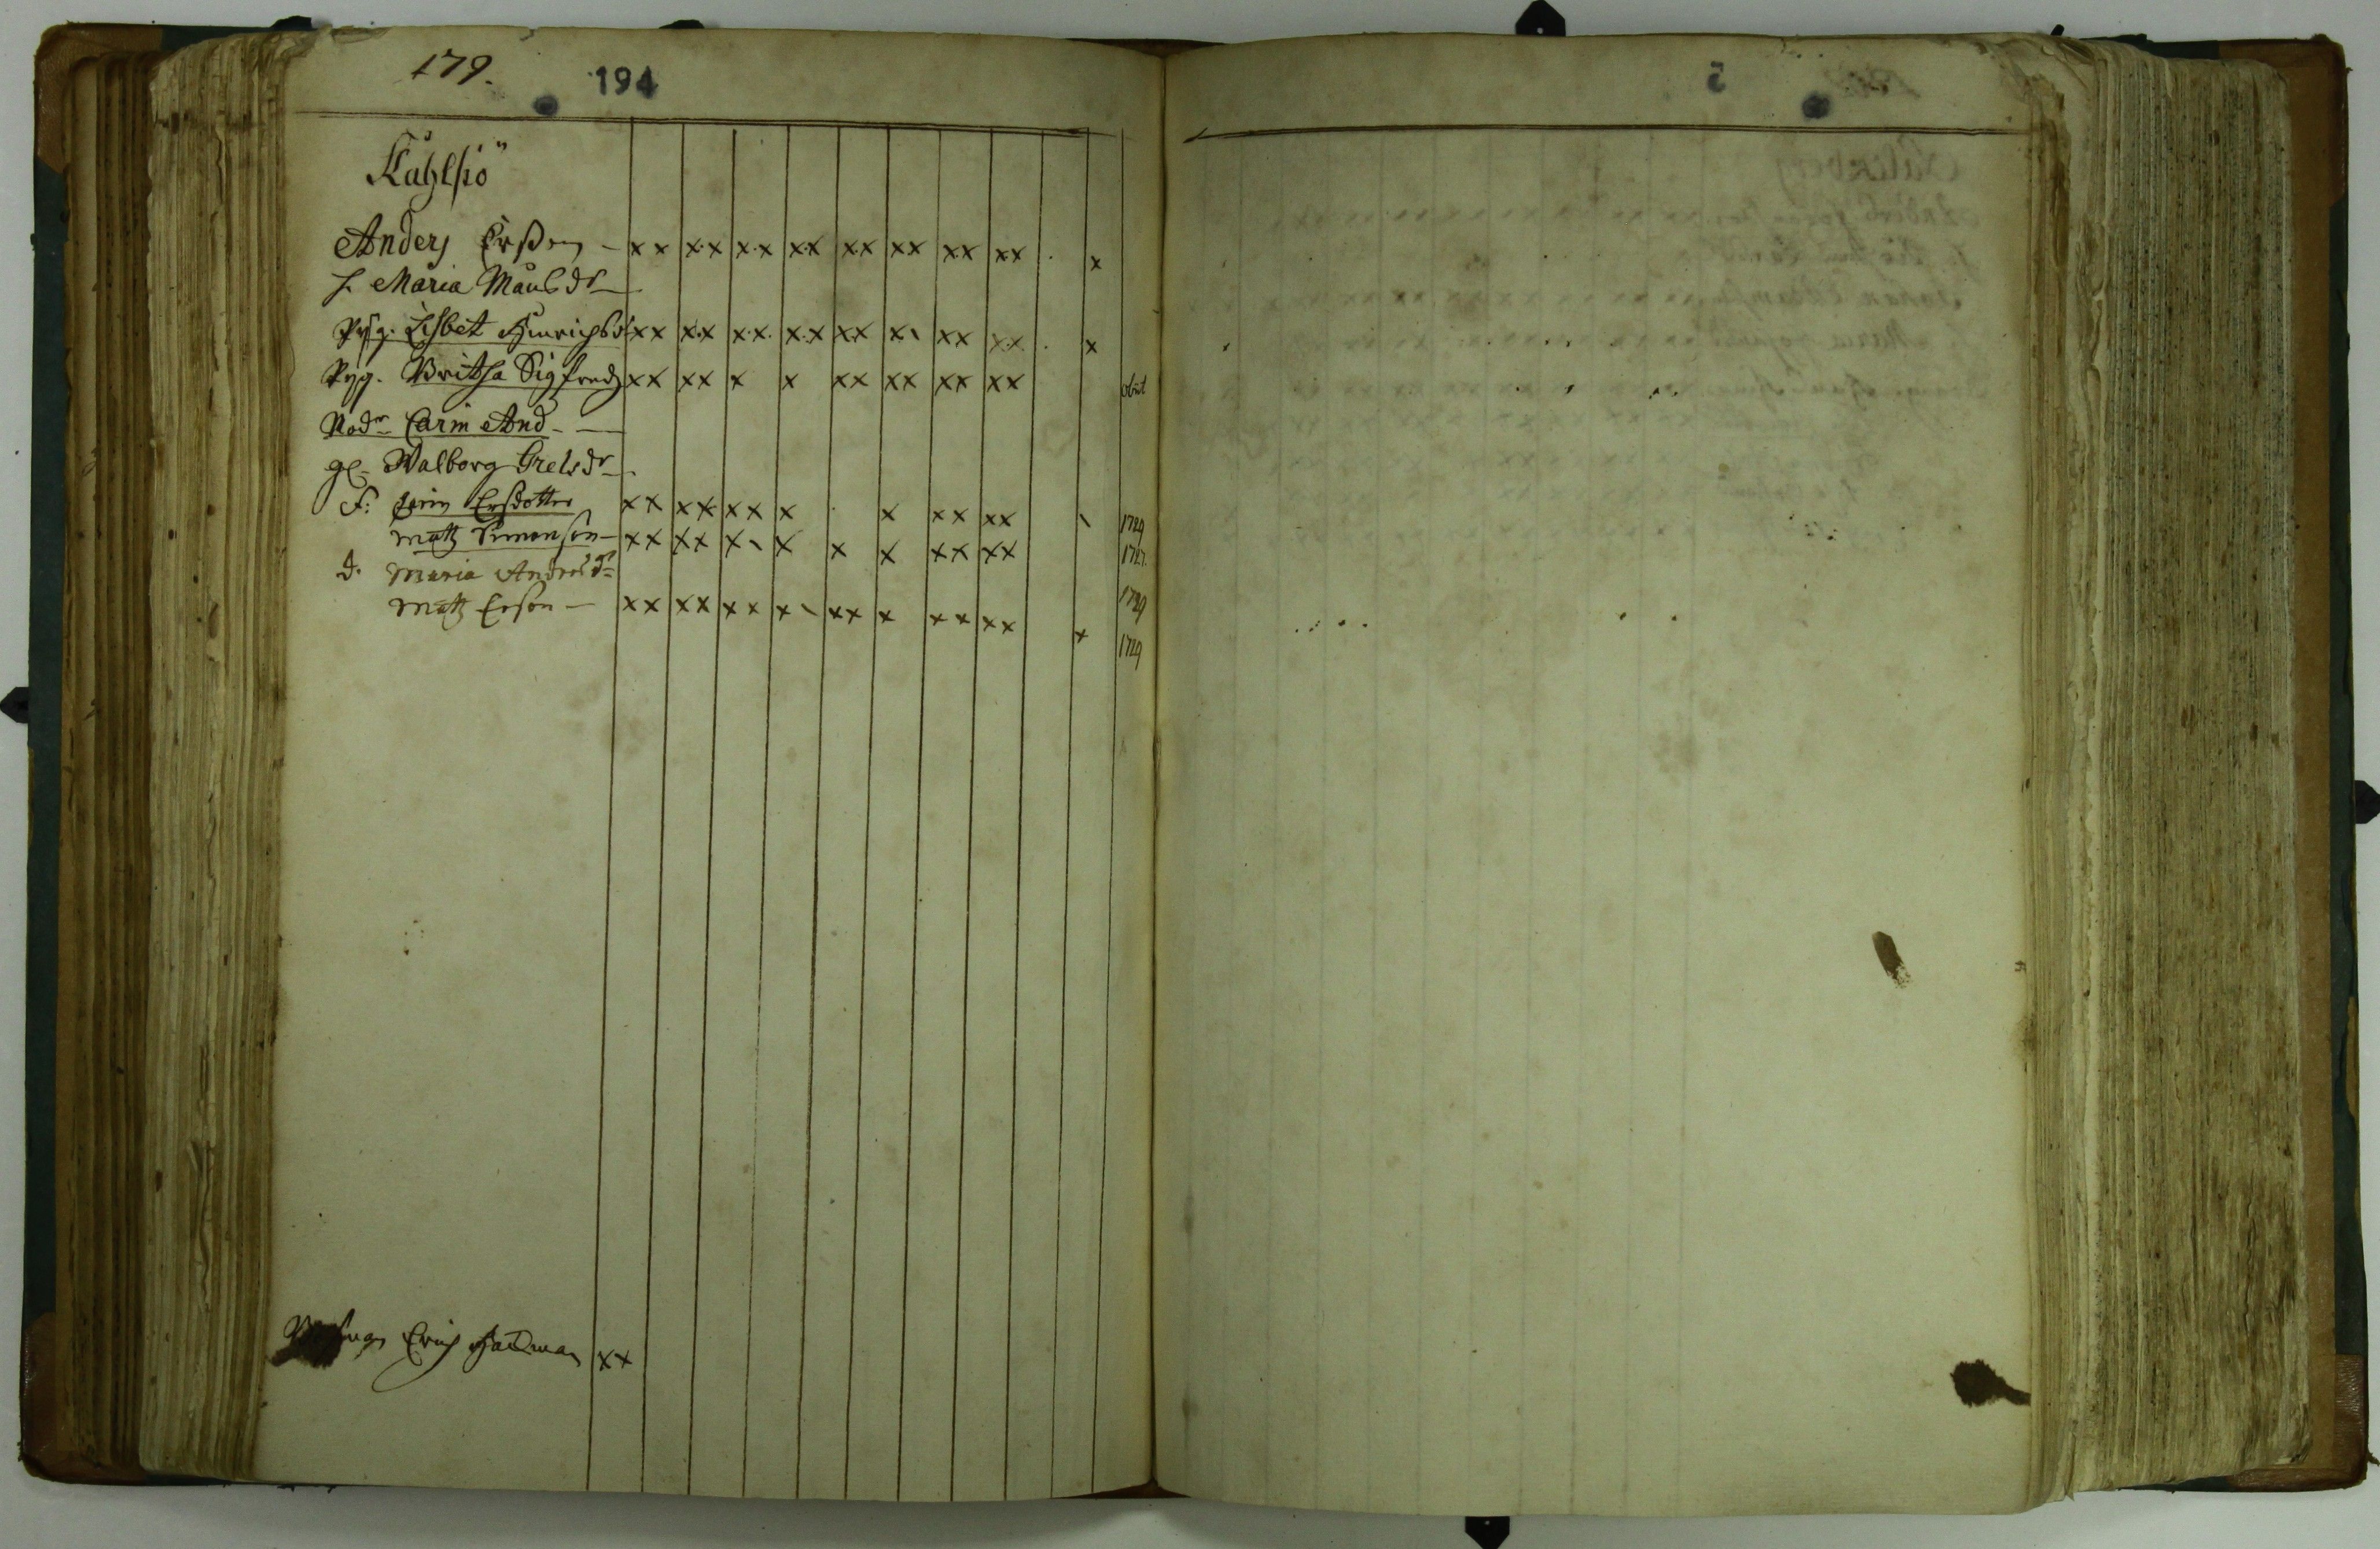 179. 194
Kåhlsiö
Anders Erßon – xx xx xx xx xx xx xx xx . x
h. Maria Månsdr –
Pyg. Lisbet Hinrichsdr xx xx xx xx xx x\ xx xx . x
Pyg. Britha Sigfredz xx xx x x xx xx xx xx obiit
Carin And –
ge. Walborg Grelsdr –
h: Carin Ersdotter xx xx xx x . x xx xx \ 1729
Matz Simonson – xx xx x\ x x x xx xx 1727.
d. Maria Andersdr 1729
Matz Erson – xx xx xx x\ xx x xx xx x 1729
Erich xx